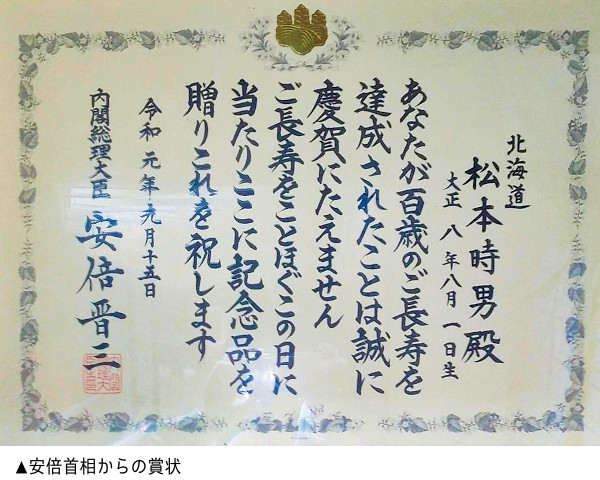 北海道
松本時男殿
大正八年八月一日生
あなたが百歳のご長寿を
達成されたことは誠に
慶賀にたえません
ご長寿をことほぐこの日に
当たりここに記念品を
贈りこれを祝します
令和元年九月十五日
内閣総理大臣 安倍晋三
▲安倍首相からの賞状